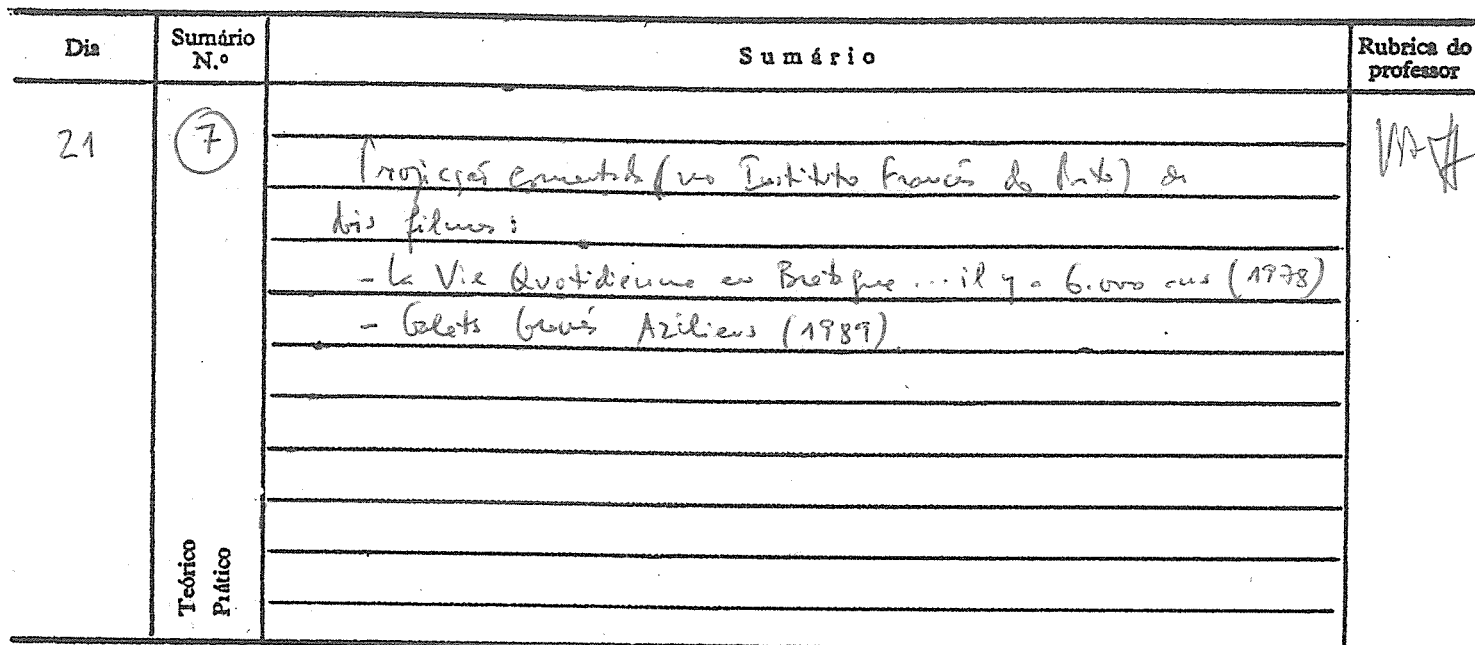 Dia
Sumário N.º
Sumário
Rubrica do professor
21
7
Projecção comentada (no Instituto Francês do Porto) de
dois filmes:
- La Vie Quotidienne en Bretagne ... il y a 6.000 ans (1978)
- Galets Gravés Aziliens (1989)
Teórico
Prático